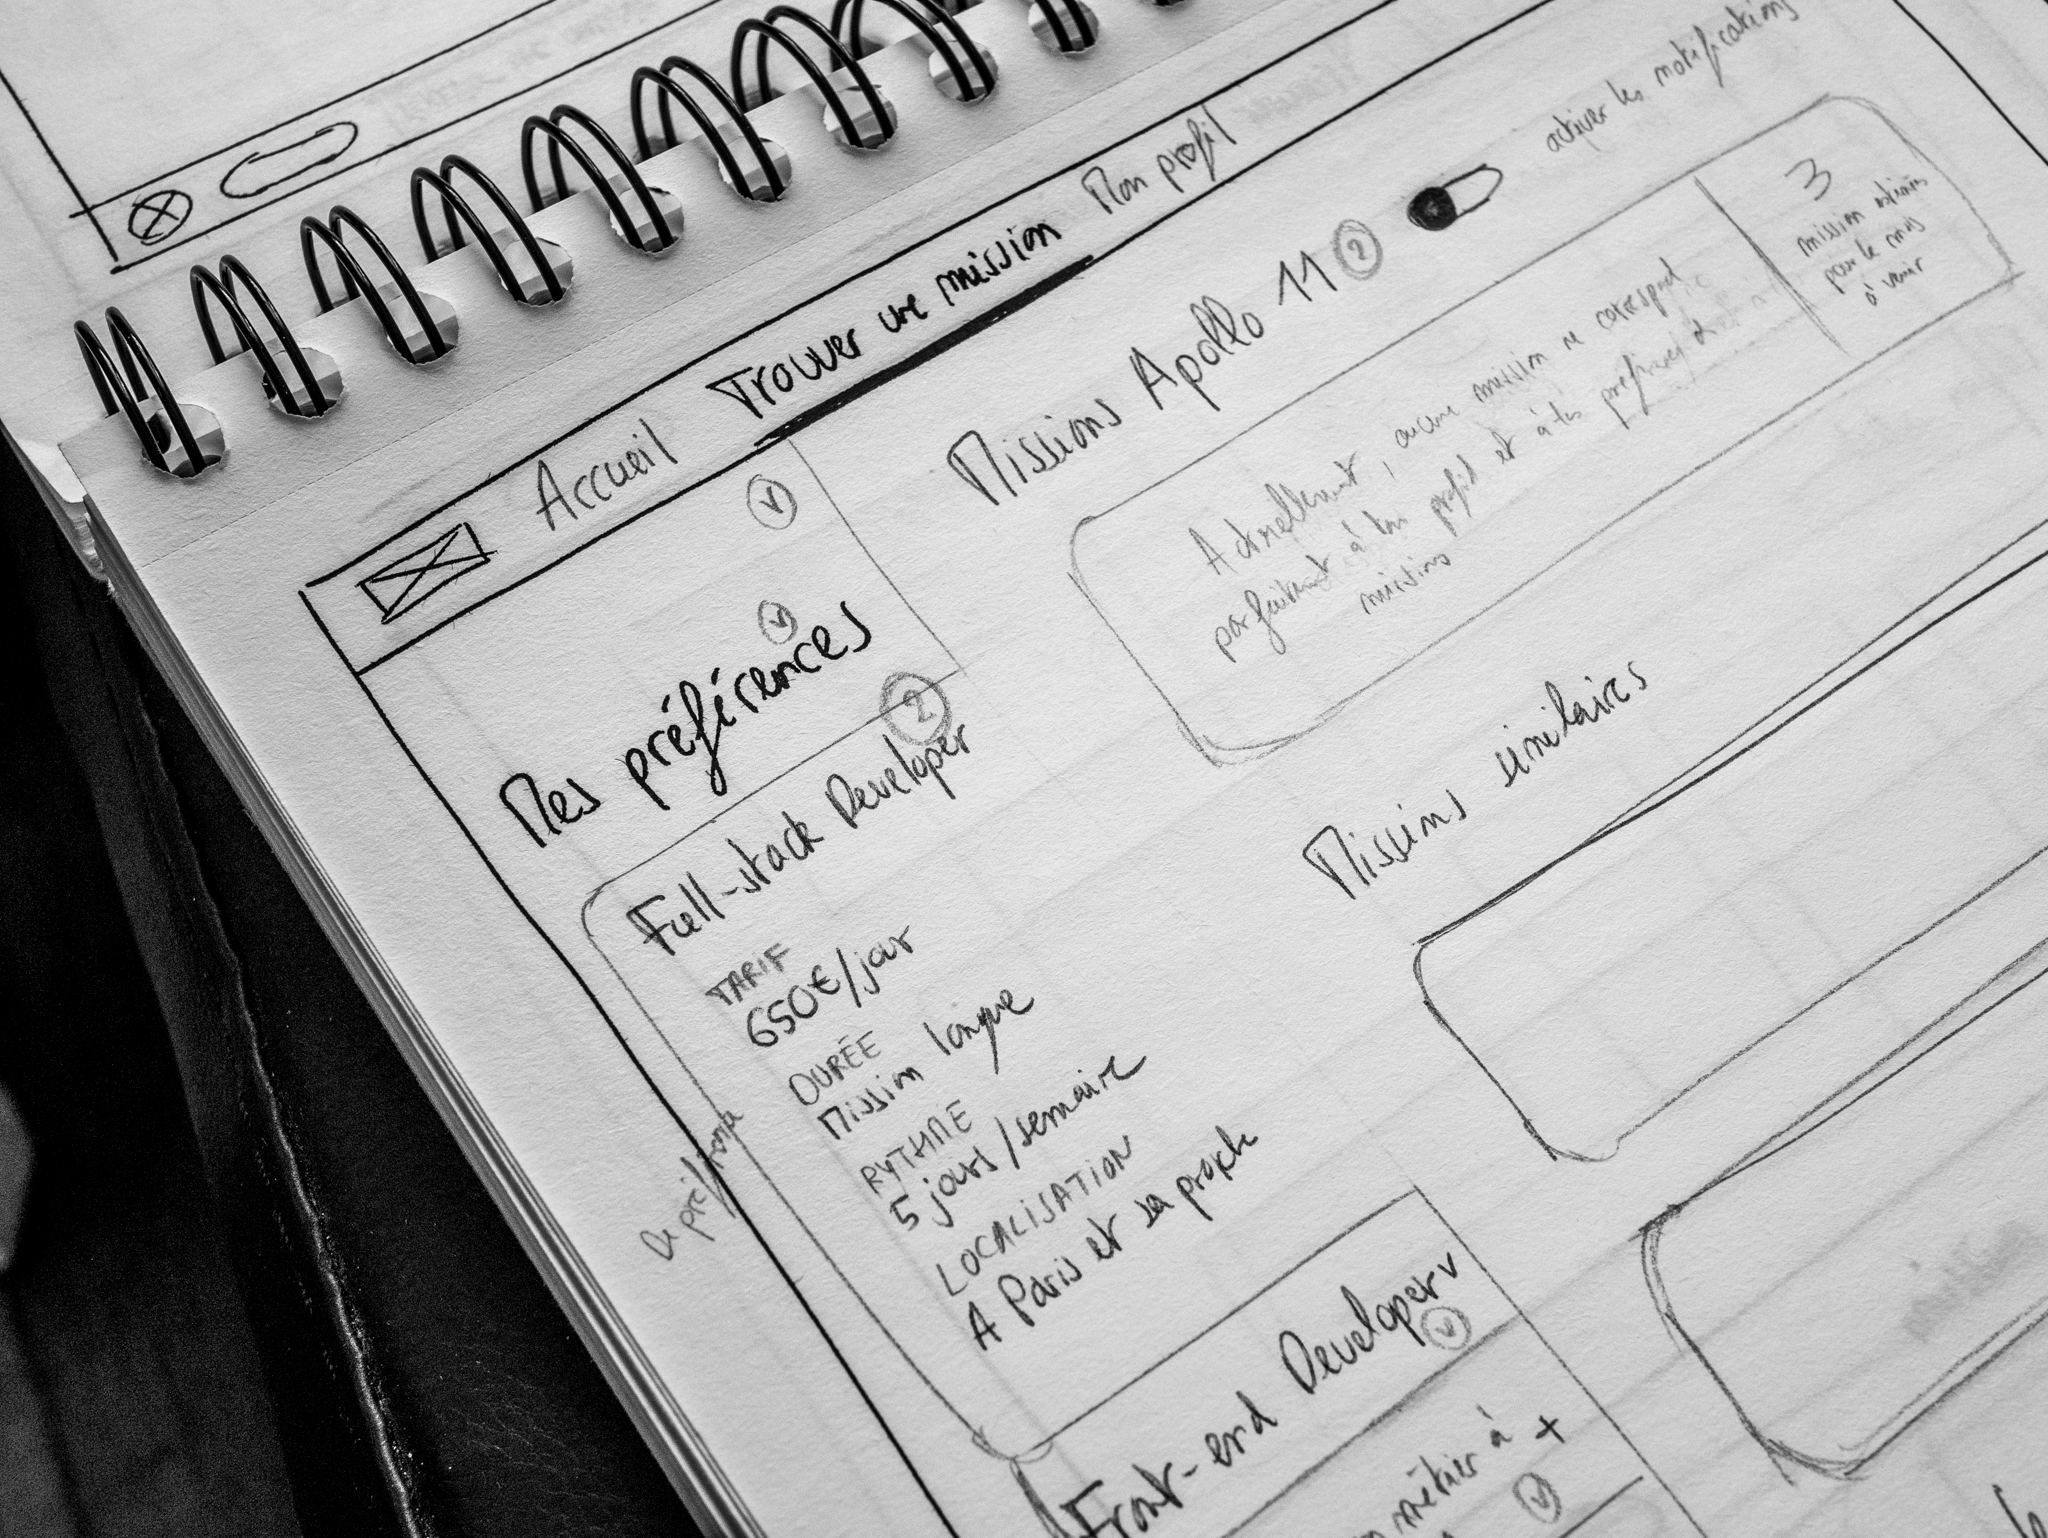 Accueil Trouver une mission Mon profil
Mes préférences
2
Full-stack Developer
TARIF
650€/jour
DURÉE
Mission longue
RYTHME
5 jours/semaine
LOCALISATION
A Paris et sa proche
Front-end Developer
métier à
+
Missions Apollo 11 ?
activer les notifications
Actuellement, aucune mission ne correspond
parfaitement à ton profil et à tes
missions
3
mission
pour le mois
à venir
Missions similaires